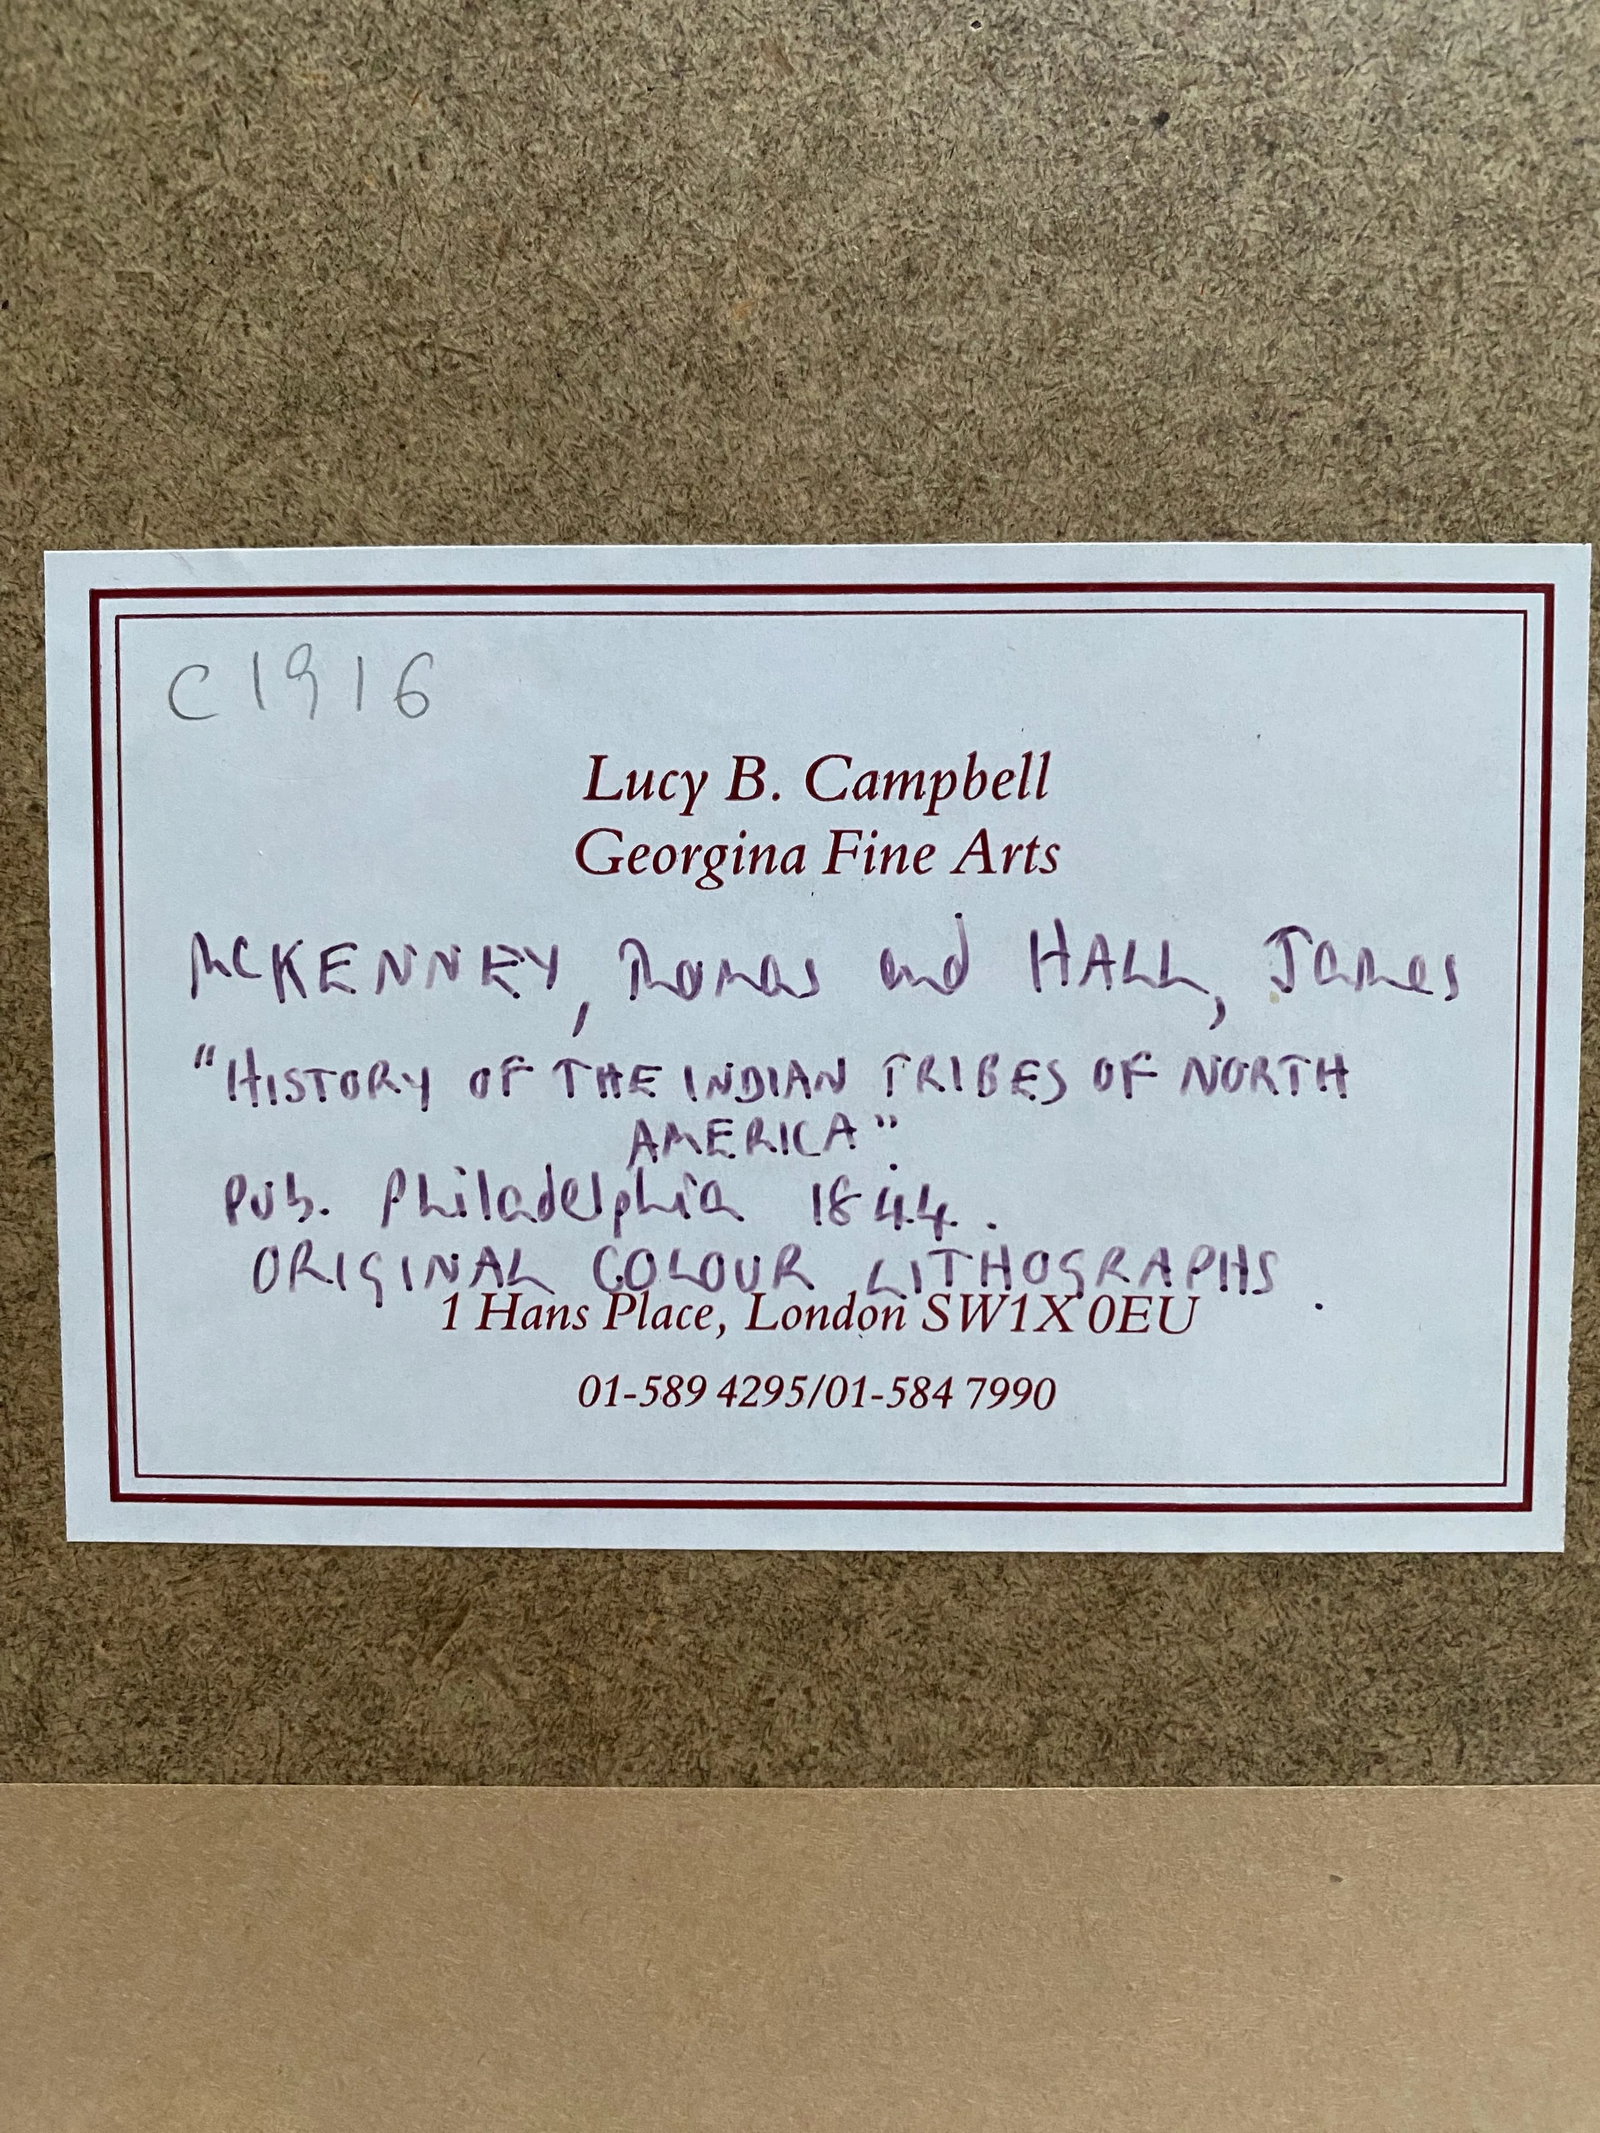 C1916
Lucy B. Campbell
Georgina Fine Arts
McKENNEY, Thomas and HALL, James
"HISTORY OF THE INDIAN TRIBES OF NORTH
AMERICA".
Pub. Philadelphia 1844.
ORIGINAL COLOUR LITHOGRAPHS.
1 Hans Place, London SW1X 0EU
01-589 4295/01-584 7990